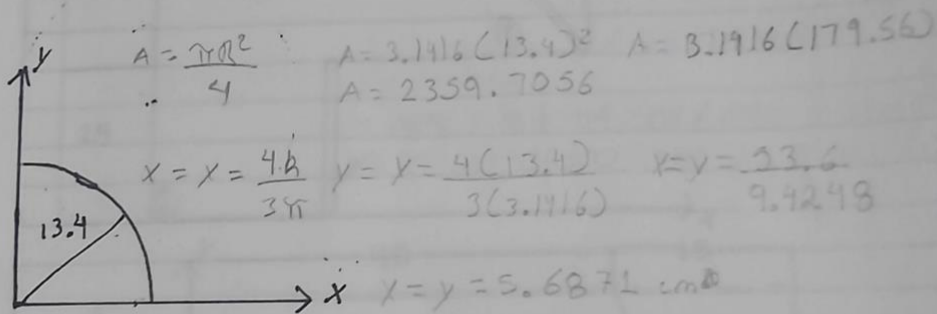 y
A = πR²/4 A = 3.1416(13.4)² A = 3.1416(179.56)
A = 2359.7056
x = x = 4.R/3π y = y = 4(13.4)/3(3.1416) x=y= 53.6/9.4248
13.4
x x = y = 5.6871 cm